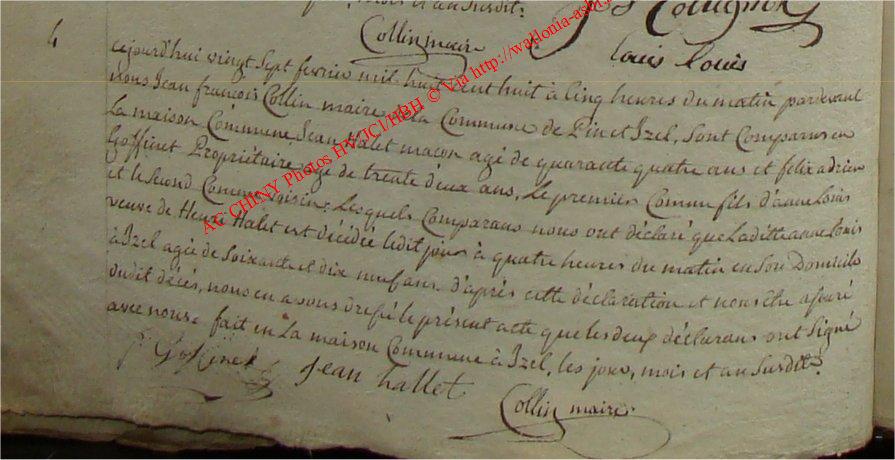 mois et an Susdit:
Collin maire
louis louis
4
cejourd'hui vingt Sept fevrier mil huit cent huit à Cinq heures du matin pardevant
nous Jean françois Collin maire de la Commune de Pin et Izel, Sont Comparus en
La maison Commune Jean Halet macon agé de quarante quatre ans et felix adrien
Goffinet Propriétaire agé de trente deux ans, Le premier Comme fils d'anne Louis
et le Second Comme voisin: Lesquels Comparans nous ont déclaré que Laditte anne Louis
veuve de Henri Halet est décédée ledit jour à quatre heures du matin en Son Domicile
à Izel agée de Soixante et dix neuf ans. d'après cette déclaration et nous être assuré
dudit décès, nous en avons dressé le présent acte que les deux déclarans ont Signé
avec nous: fait en La maison Commune à Izel, les jour, mois et an Susdit:
Goffinet
Jean hallet
Collin maire.
AC CHINY Photos HV/JCI/HBH © Via http://wallonia-asbl